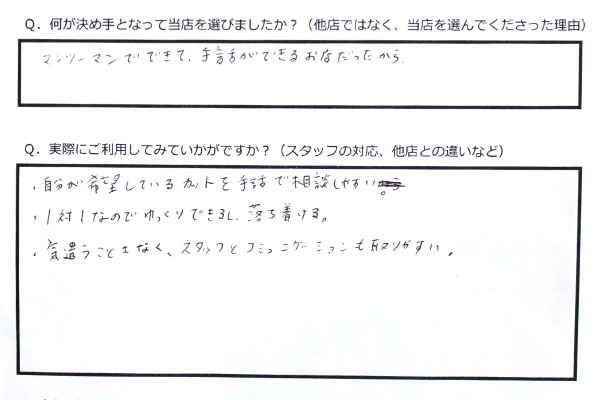 Q．何が決め手となって当店を選びましたか？（他店ではなく、当店を選んでくださった理由）
マンツーマンでできて、手話ができるお店だったから。
Q．実際にご利用してみていかがですか？（スタッフの対応、他店との違いなど）
・自分が希望しているカットを手話で相談しやすい。
・1対1なのでゆっくりできるし、落ち着ける。
・気遣うことなく、スタッフとコミュニケーションも取りやすい。